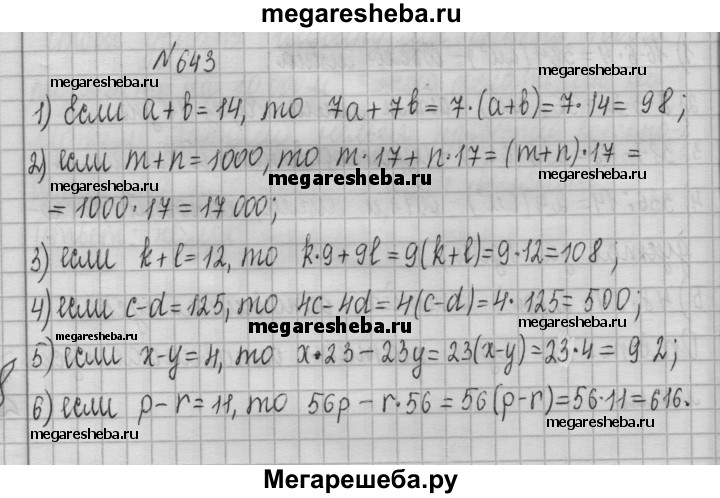 megaresheba.ru
N 643
megaresheba.ru megaresheba.ru
1) Если a+b=14, то 7a+7b=7·(a+b)=7·14=98;
2) если m+n=1000, то m·17+n·17=(m+n)·17=
megaresheba.ru megaresheba.ru megaresheba.ru
=1000·17=17 000;
3) если k+l=12, то k·9+9l=9(k+l)=9·12=108;
4) если c-d=125, то 4c-4d=4(c-d)=4·125=500;
megaresheba.ru megaresheba.ru megaresheba.ru
5) если x-y=4, то x·23-23y=23(x-y)=23·4=92;
6) если p-r=11, то 56p-r·56=56(p-r)=56·11=616.
megaresheba.ru megaresheba.ru
Мегарешеба.ру